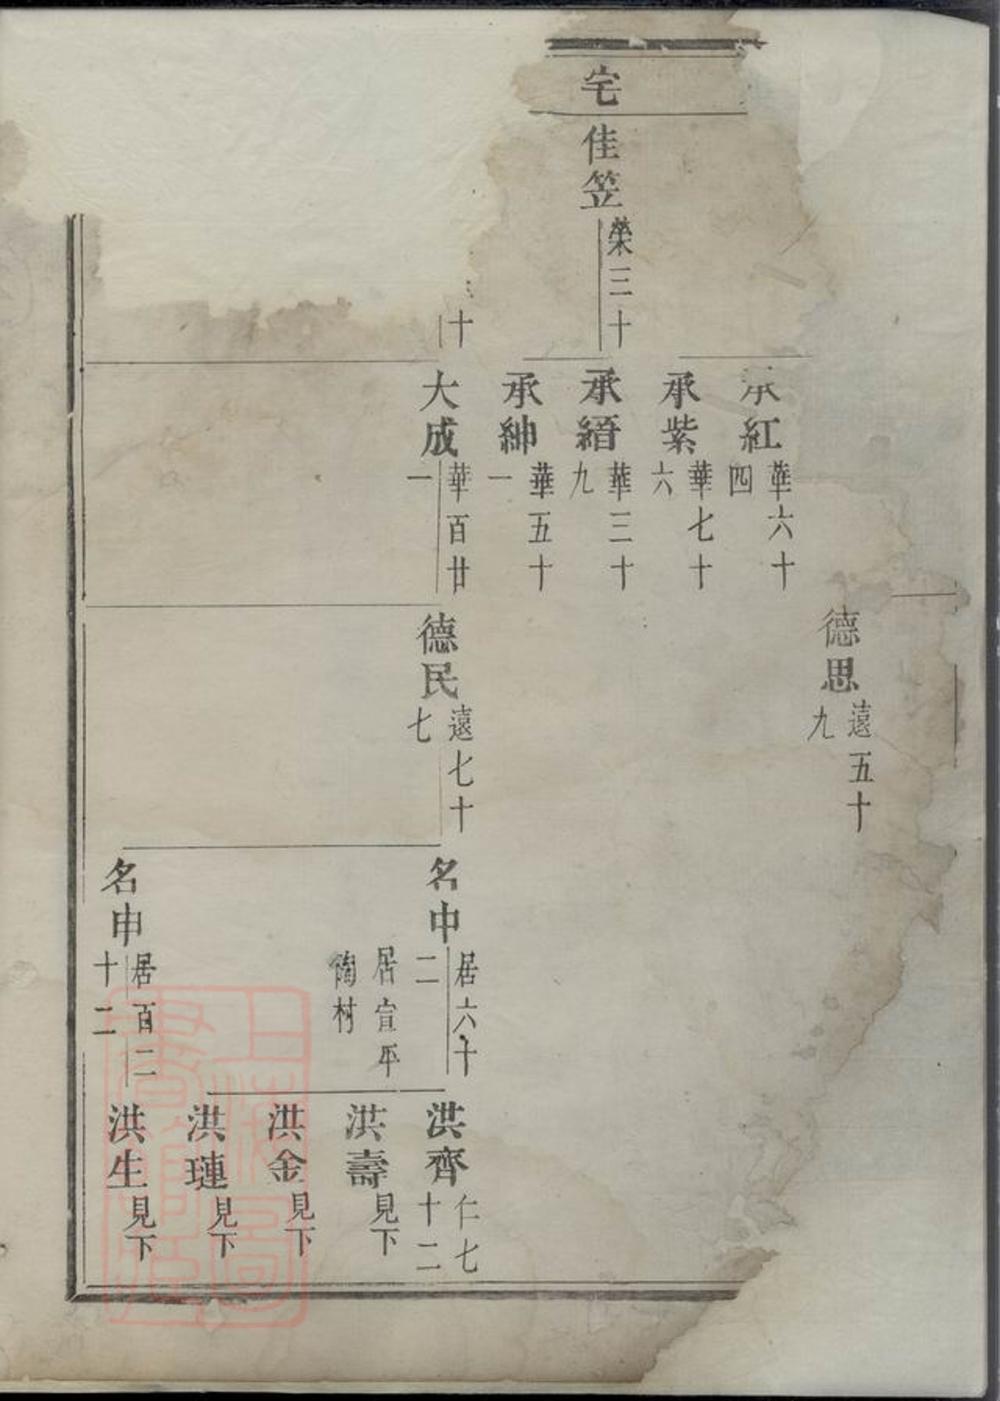 宅
佳笠 榮三十
十
承紅 華六十四
承紫 華七十六
承縉 華三十九
承紳 華五十一
大成 華百廿一
德思 遠五十九
德民 遠七十七
名中 居六十二
居宣平
陶村
名申 居百二十二
洪齊 仁七十二
洪壽 見下
洪金 見下
洪璉 見下
洪生 見下